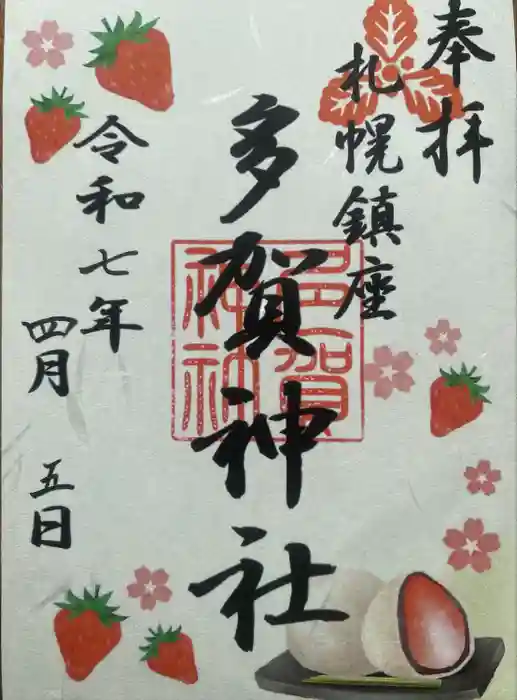 奉拝
札幌鎮座
多賀神社
多賀神社
令和七年
四月 五日